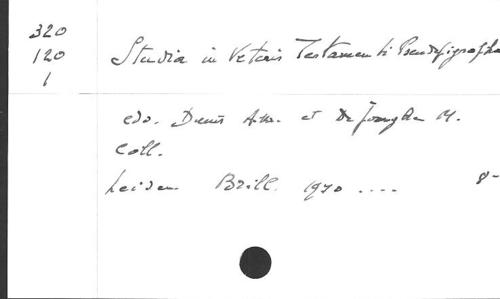 320
120
1
Studia in Veteris Testamenti Pseudepigrapha
edd. Denis A.M. et De Jonghe M.
Coll.
Leiden Brill. 1970 .... 8-